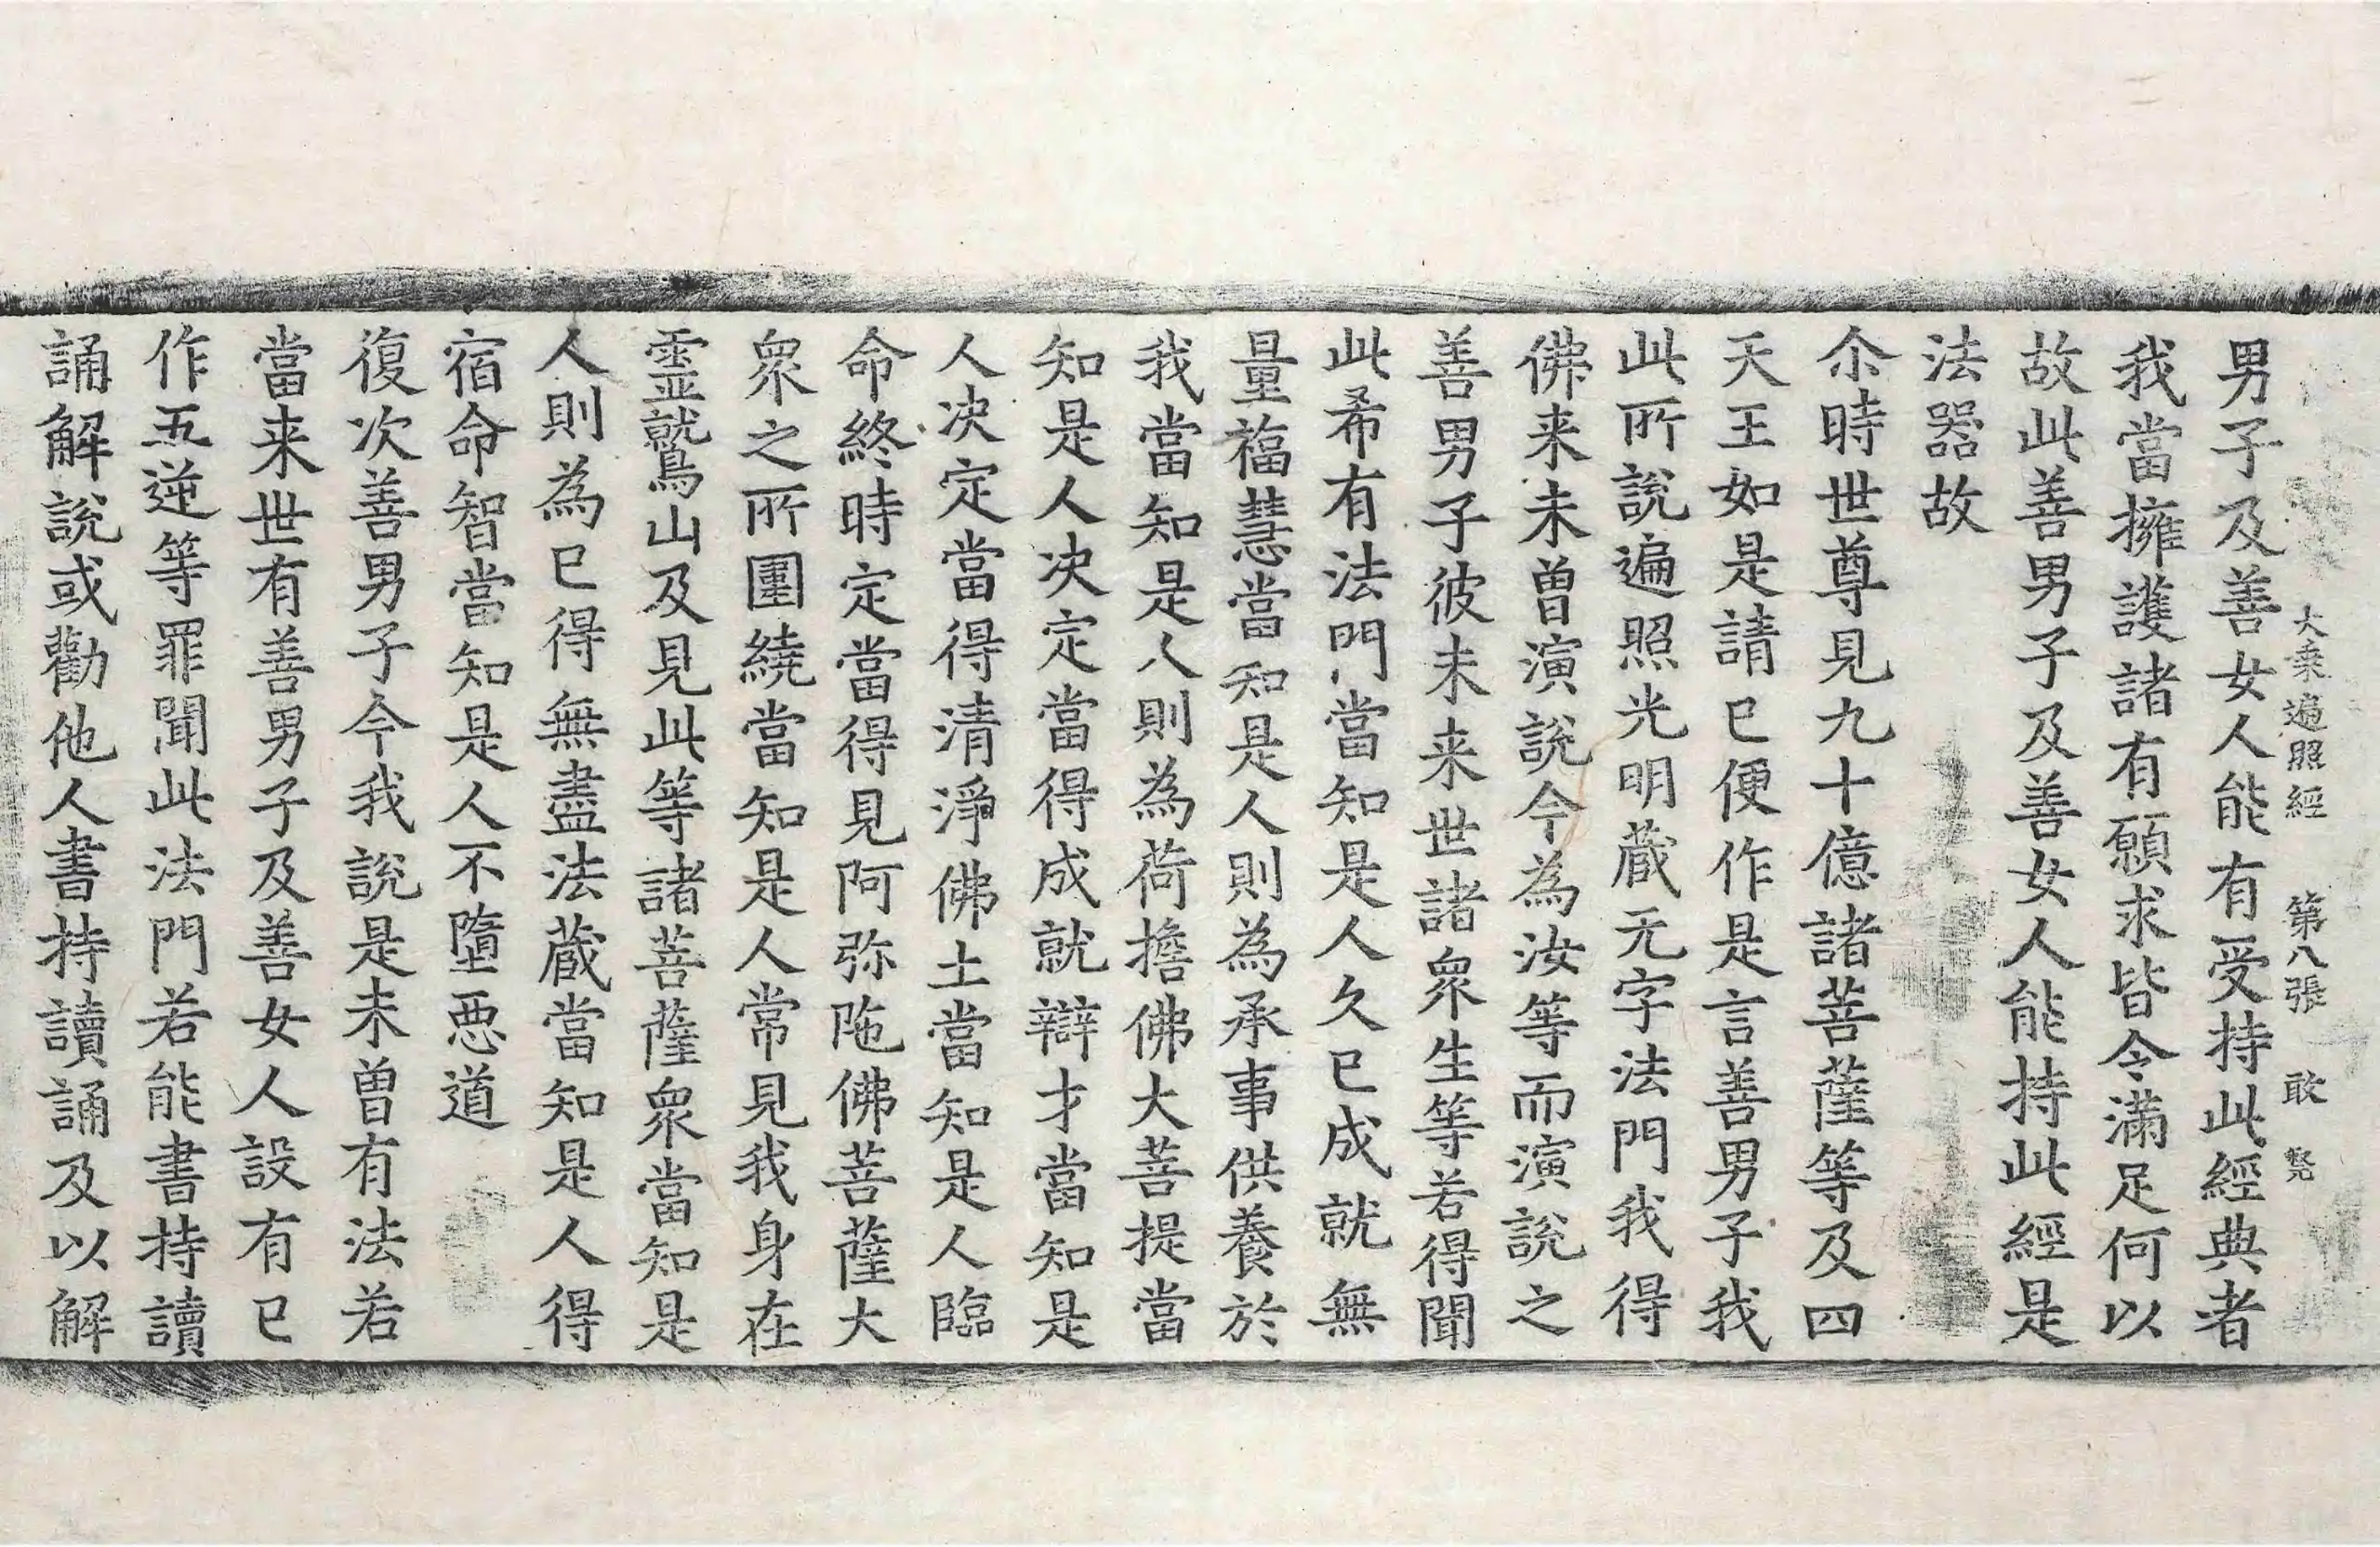 大乗遍照經 第八張 敢
男子及善女人能有受持此經典者
我當擁護諸有願求皆令滿足何以
故此善男子及善女人能持此經是
法器故
尒時世尊見九十億諸菩薩等及四
天王如是請已便作是言善男子我
此所說遍照光明蔵无字法門我得
佛来未曽演說今為汝等而演說之
善男子彼未来世諸衆生等若得聞
此希有法門當知是人久已成就無
量福慧當知是人則為承事供養於
我當知是人則為荷擔佛大菩提當
知是人决定當得成就辯才當知是
人决定當得清淨佛土當知是人臨
命終時定當得見阿弥陁佛菩薩大
衆之所圍繞當知是人常見我身在
靈鷲山及見此等諸菩薩衆當知是
人則為已得無盡法蔵當知是人得
宿命智當知是人不墮惡道
復次善男子今我說是未曽有法若
當来世有善男子及善女人設有已
作五逆等罪聞此法門若能書持讀
誦解說或勸他人書持讀誦及以解